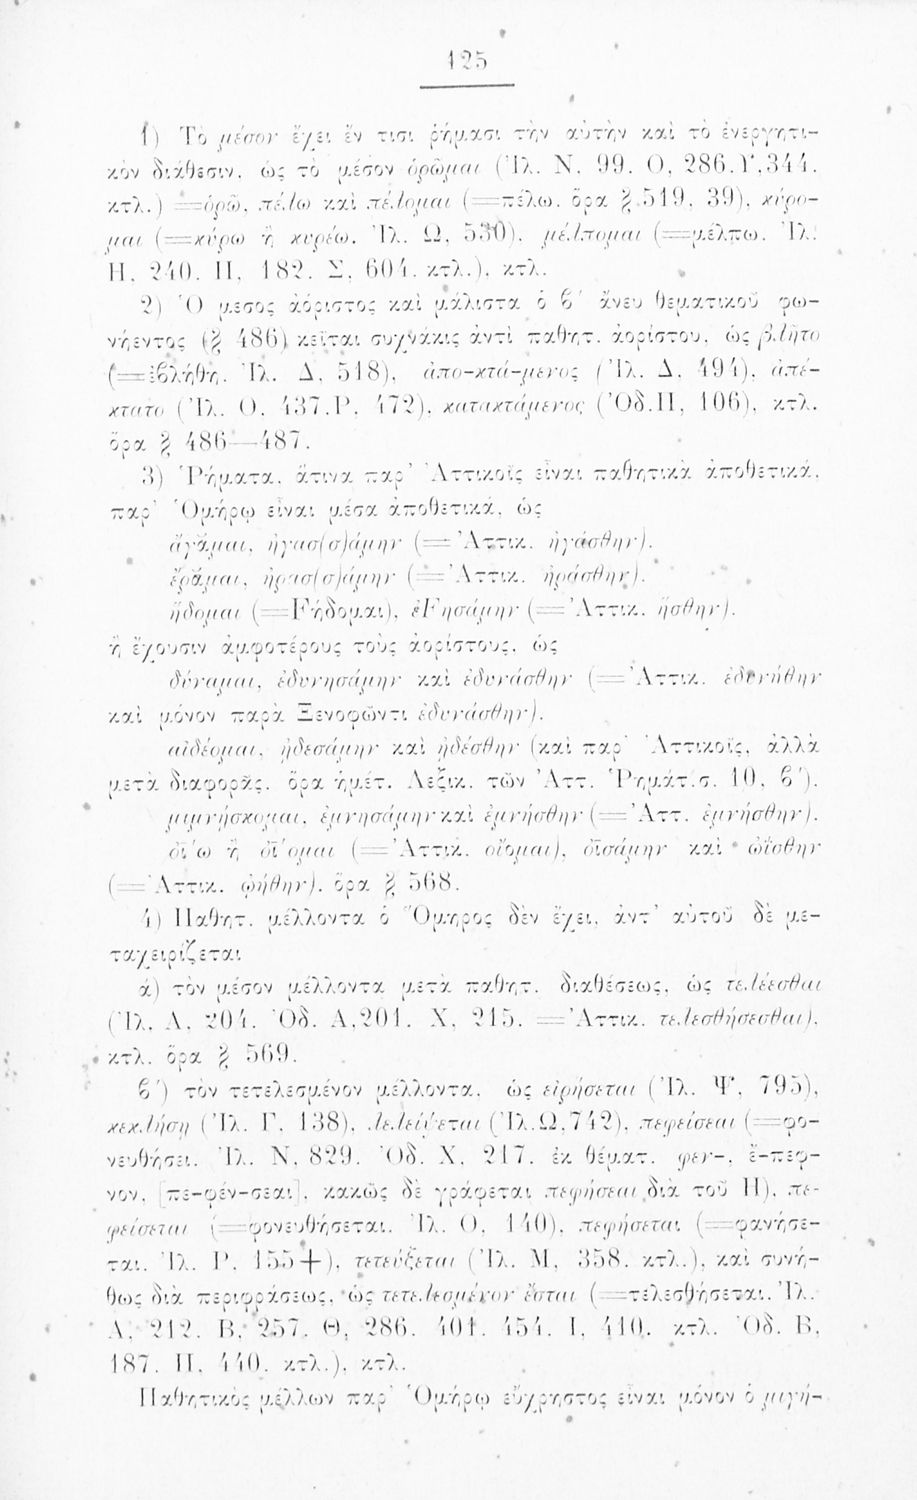 125
1) Τὸ μέσον ἔχει ἔν τισι ῥήμασι τὴν αὐτὴν καὶ τὸ ἐνεργητι-
κὸν διάθεσιν, ὡς τὸ μέσον ὁρῶμαι (Ἰλ. Ν, 99. Ο, 286. Υ, 344.
κτλ.) =ὁρῶ, πέλω καὶ πέλομαι (=πέλω. ὅρα § 519, 39), κύρο-
μαι (=κύρω ἢ κυρέω. Ἰλ. Ω, 530), μέλπομαι (=μέλπω. Ἰλ.
Η, 240. Π, 182. Σ, 604. κτλ.), κτλ.
2) Ὁ μεσος ἀόριστος καὶ μάλιστα ὁ ϐ΄ ἄνευ θεματικοῦ φω-
νήεντος (§ 486) κεῖται συχνάκις ἀντὶ παθητ. ἀορίστου, ὡς βλῆτο
(=ἐϐλήθη. Ἰλ. Δ, 518), ἀπο-κτά-μενος (Ἰλ. Δ, 494), ἀπέ-
κτατο (Ἰλ. Ο, 437. Ρ, 472), κατακτάμενος (Ὀδ. Π, 106), κτλ.
ὅρα § 486—487.
3) Ῥήματα, ἅτινα παρ' Ἀττικοῖς εἶναι παθητικὰ ἀποθετικά,
παρ' Ὁμήρῳ εἶναι μέσα ἀποθετικά, ὡς
ἄγαμαι, ἠγασ(σ)άμην (=Ἀττικ. ἠγάσθην).
ἔραμαι, ἠρασ(σ)άμην (=Ἀττικ. ἠράσθην).
ἥδομαι (=Ϝήδομαι), ἐϜησάμην (=Ἀττικ. ἥσθην).
ἢ ἔχουσιν ἀμφοτέρους τοὺς ἀορίστους, ὡς
δύναμαι, ἐδυνησάμην καὶ ἐδυνάσθην (=Ἀττικ. ἐδυνήθην
καὶ μόνον παρὰ Ξενοφῶντι ἐδυνάσθην).
αἰδέομαι, ᾐδεσάμην καὶ ᾐδέσθην (καὶ παρ' Ἀττικοῖς, ἀλλὰ
μετὰ διαφορᾶς. ὅρα ἡμέτ. Λεξικ. τῶν Ἀττ. Ῥημάτ. σ. 10, ϐ΄).
μιμνήσκομαι, ἐμνησάμην καὶ ἐμνήσθην (=Ἀττ. ἐμνήσθην).
ὀΐω ἢ ὀΐομαι (=Ἀττικ. οἴομαι), ὀϊσάμην καὶ ὠΐσθην
(=Ἀττικ. ᾠήθην). ὅρα § 568.
4) Παθητ. μέλλοντα ὁ Ὅμηρος δὲν ἔχει, ἀντ' αὐτοῦ δὲ με-
ταχειρίζεται
ά) τὸν μέσον μέλλοντα μετὰ παθητ. διαθέσεως, ὡς τελέεσθαι
(Ἰλ. Α, 204. Ὀδ. Α, 201. Χ, 215. =Ἀττικ. τελεσθήσεσθαι),
κτλ. ὅρα § 569.
ϐ΄) τὸν τετελεσμένον μέλλοντα, ὡς εἰρήσεται (Ἰλ. Ψ, 795),
κεκλήσῃ (Ἰλ. Γ, 138), λελείψεται (Ἰλ. Ω, 742), πεφείσεαι (=φο-
νευθήσει. Ἰλ. Ν, 829. Ὀδ. Χ, 217. ἐκ θέματ. φεν-, ἔ-πεφ-
νον, [πε-φέν-σεαι], κακῶς δὲ γράφεται πεφήσεαι διὰ τοῦ Η), πε-
φείσεται (=φονευθήσεται. Ἰλ. Ο, 140), πεφήσεται (=φανήσε-
ται. Ἰλ. Ρ, 155+), τετεύξεται (Ἰλ. Μ, 358. κτλ.), καὶ συνή-
θως διὰ περιφράσεως, ὡς τετελεσμένον ἔσται (=τελεσθήσεται. Ἰλ.
Α, 212. Β, 257. Θ, 286. 401. 454. Ι, 410. κτλ. Ὀδ. Β,
187. Π, 440. κτλ.), κτλ.
Παθητικὸς μέλλων παρ' Ὁμήρῳ εὔχρηστος εἶναι μόνον ὁ μιγή-